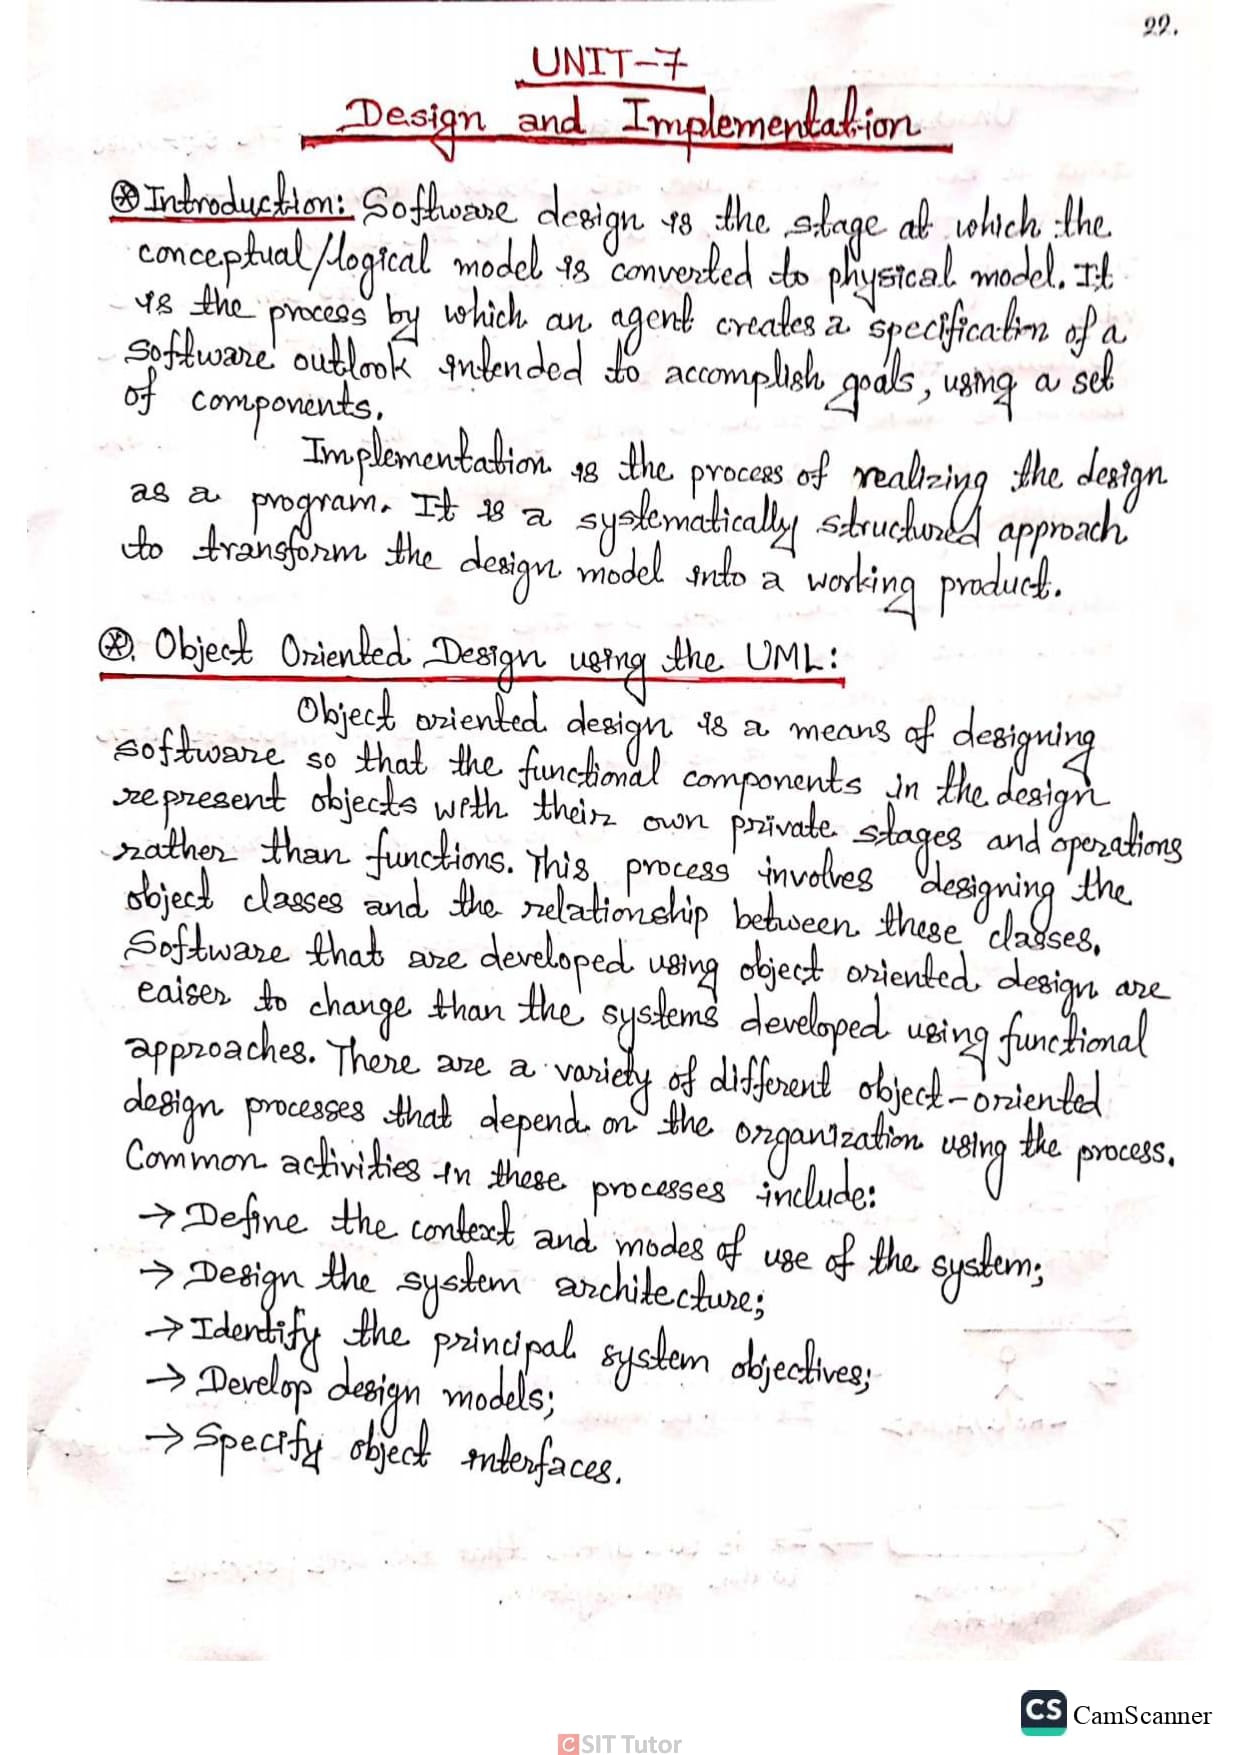 22.
UNIT-7
Design and Implementation
⊛ Introduction: Software design is the stage at which the
conceptual/logical model is converted to physical model. It
is the process by which an agent creates a specification of a
software outlook intended to accomplish goals, using a set
of components.
Implementation is the process of realizing the design
as a program. It is a systematically structured approach
to transform the design model into a working product.
⊛. Object Oriented Design using the UML:
Object oriented design is a means of designing
software so that the functional components in the design
represent objects with their own private stages and operations
rather than functions. This process involves designing the
object classes and the relationship between these classes.
Software that are developed using object oriented design are
eaiser to change than the systems developed using functional
approaches. There are a variety of different object-oriented
design processes that depend on the organization using the process.
Common activities in these processes include:
→ Define the context and modes of use of the system;
→ Design the system architecture;
→ Identify the principal system objectives;
→ Develop design models;
→ Specify object interfaces.
CS CamScanner
CSIT Tutor